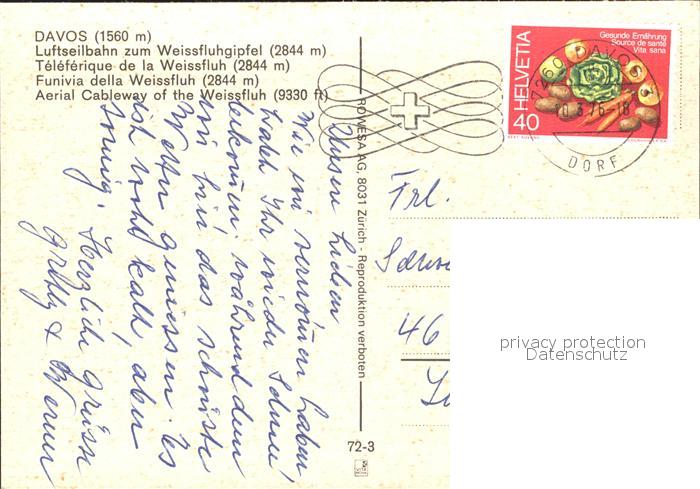 DAVOS (1560 m)
Luftseilbahn zum Weissfluhgipfel (2844 m)
Téléférique de la Weissfluh (2844 m)
Funivia della Weissfluh (2844 m)
Aerial Cableway of the Weissfluh (9330 ft)
HELVETIA
40
Gesunde Ernährung
Source de santé
Vita sana
7260 DAVOS 3
10.3.76-18
DORF
ROWESA AG, 8031 Zürich - Reproduktion verboten
Unsere Lieben
Wie wir vernommen haben
habt Ihr wieder Schnee
bekommen. während dem
wir hier das schönste
Wetter geniessen. Es
ist wohl kalt, aber
sonnig. Herzliche Grüsse
& Werner
Frl.
46
72-3
privacy protection
Datenschutz